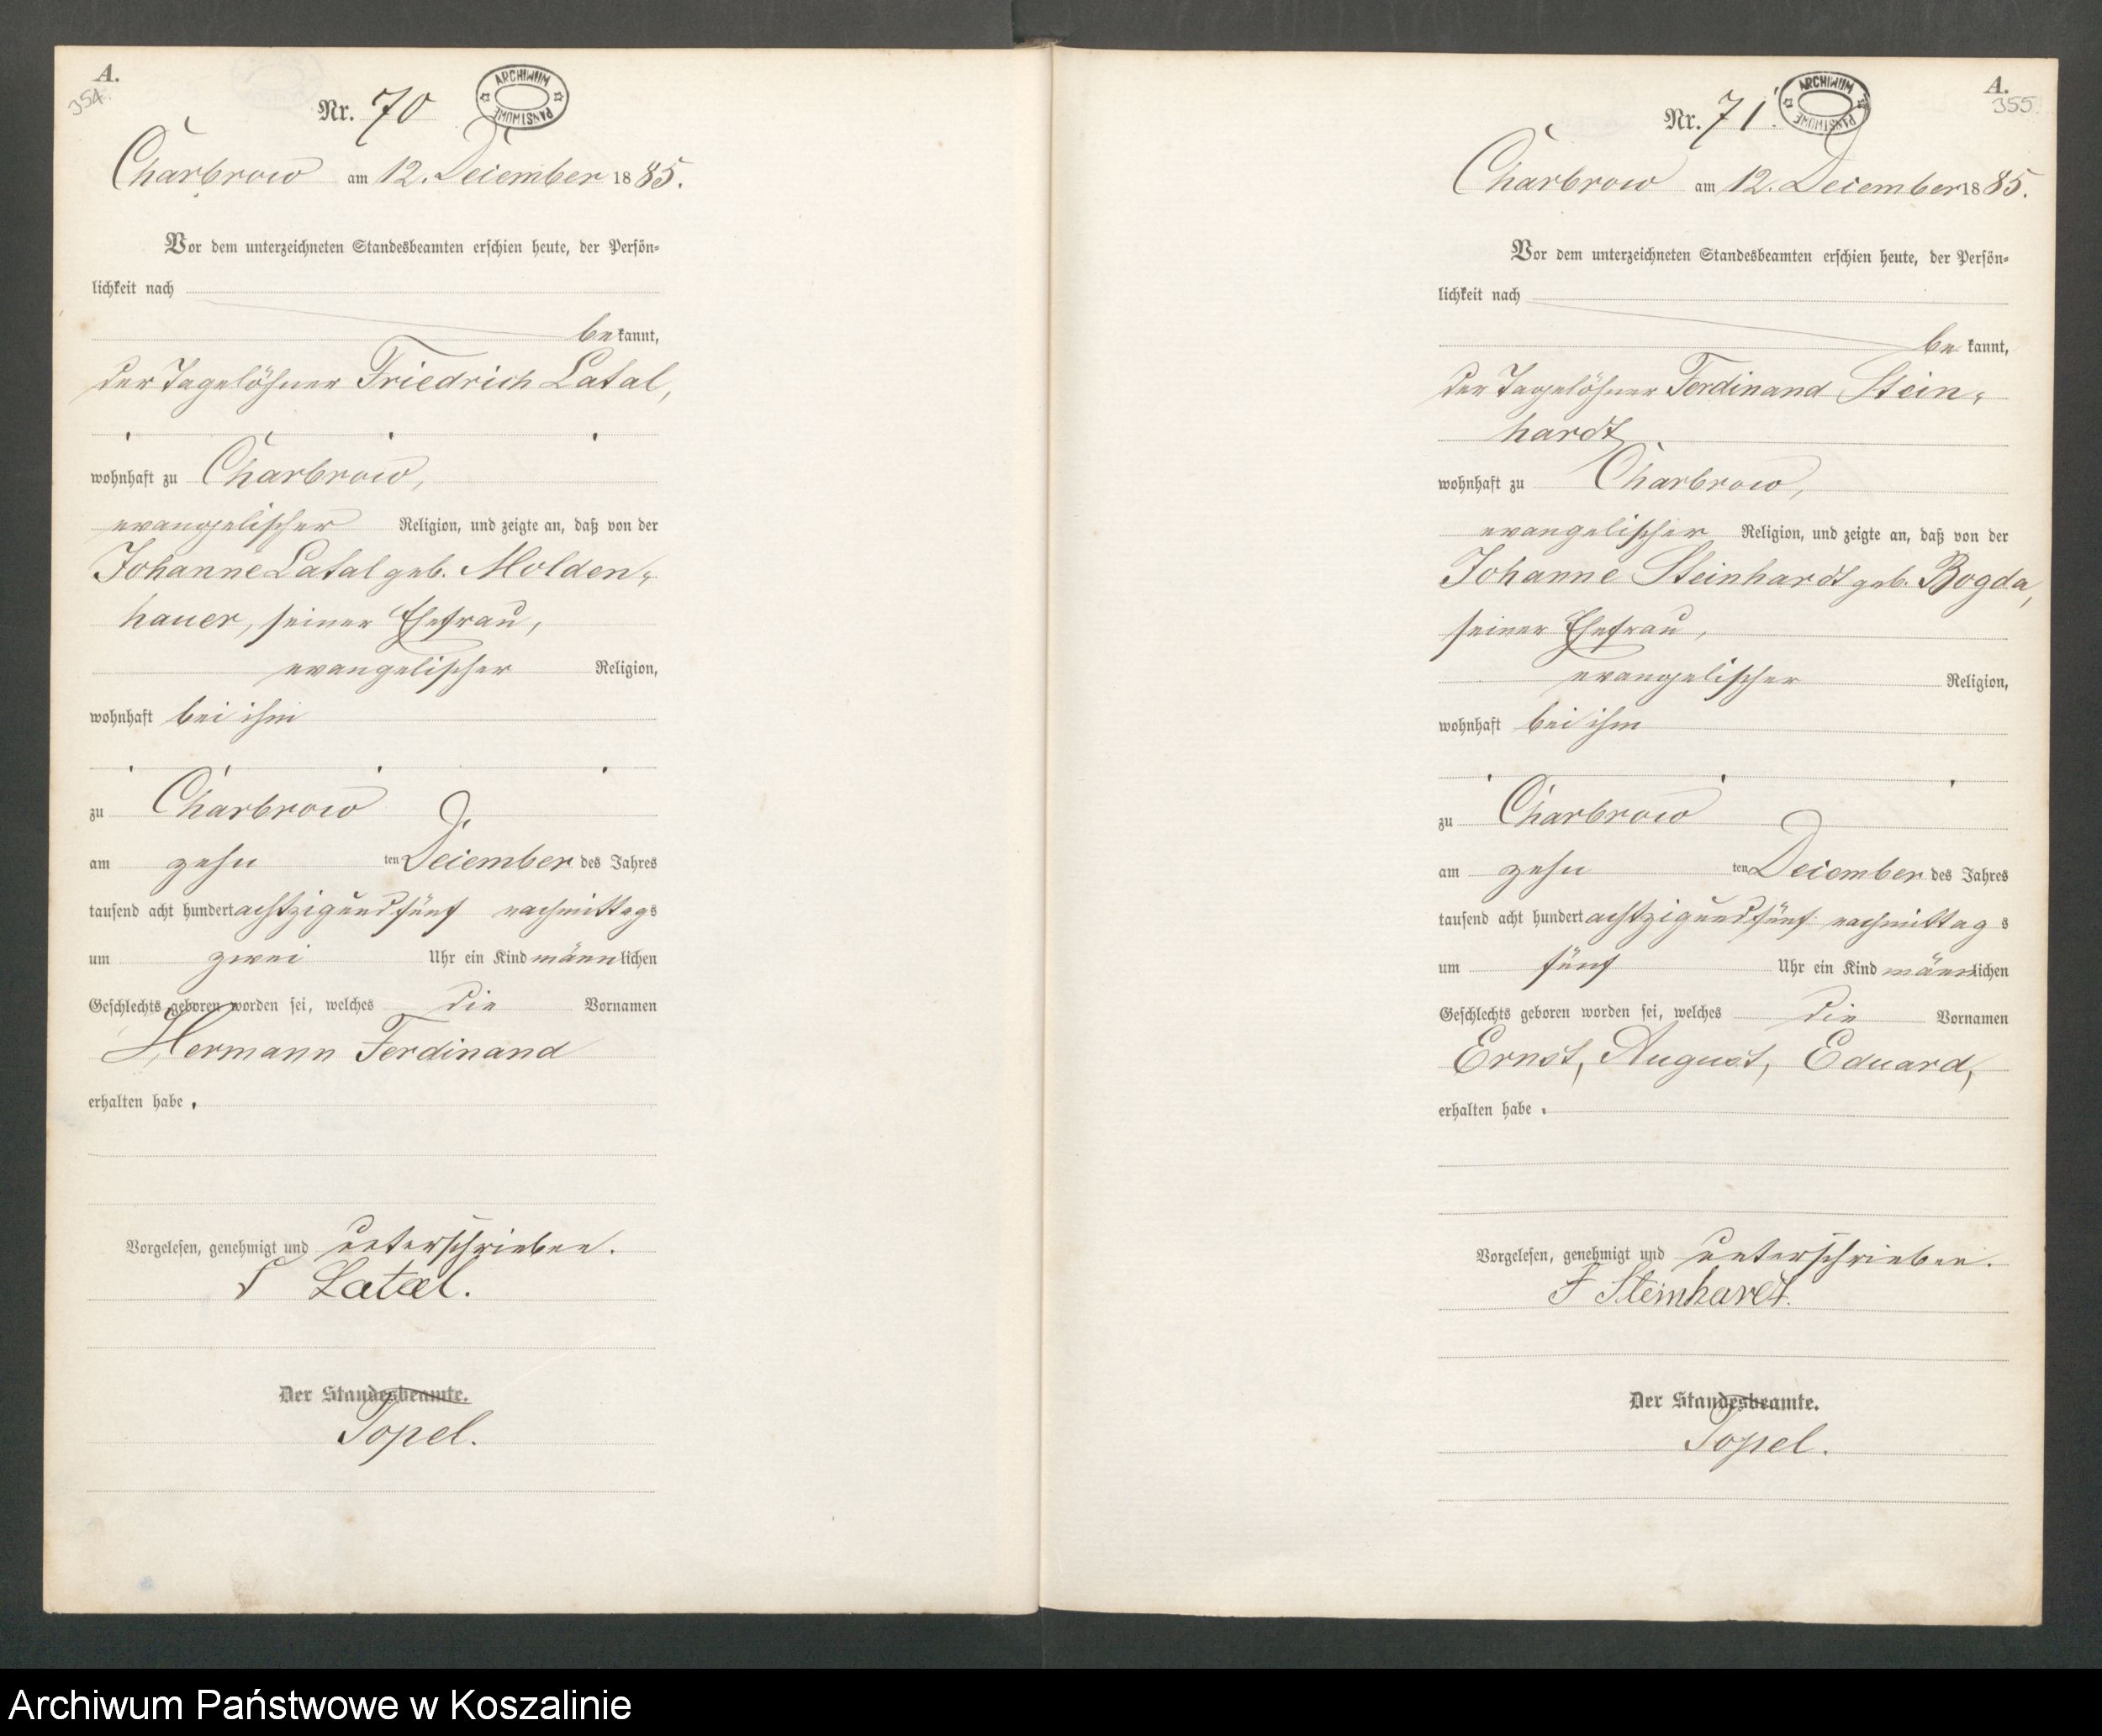 A.
354.
Nr. 70
ARCHIWUM PAŃSTWOWE
Charbrow am 12. December 1885.
Vor dem unterzeichneten Standesbeamten erschien heute, der Persön-
lichkeit nach
bekannt,
der Tagelöhner Friedrich Latal,
wohnhaft zu Charbrow,
evangelischer Religion, und zeigte an, daß von der
Johanne Latal geb. Molden-
hauer, seiner Ehefrau,
evangelischer Religion,
wohnhaft bei ihm
zu Charbrow
am zehn ten December des Jahres
tausend acht hundert achtzig und fünf nachmittags
um zwei Uhr ein Kind männlichen
Geschlechts geboren worden sei, welches die Vornamen
Hermann Ferdinand
erhalten habe.
Vorgelesen, genehmigt und unterschrieben.
F Latal.
Der Standesbeamte.
Topel.
A.
355.
Nr. 71.
ARCHIWUM PAŃSTWOWE
Charbrow am 12. December 1885.
Vor dem unterzeichneten Standesbeamten erschien heute, der Persön-
lichkeit nach
bekannt,
der Tagelöhner Ferdinand Stein-
hardt
wohnhaft zu Charbrow,
evangelischer Religion, und zeigte an, daß von der
Johanne Steinhardt geb. Bogda,
seiner Ehefrau,
evangelischer Religion,
wohnhaft bei ihm
zu Charbrow
am zehn ten December des Jahres
tausend acht hundert achtzig und fünf nachmittags
um fünf Uhr ein Kind männlichen
Geschlechts geboren worden sei, welches die Vornamen
Ernst, August, Eduard,
erhalten habe.
Vorgelesen, genehmigt und unterschrieben.
F Steinhardt.
Der Standesbeamte.
Topel.
Archiwum Państwowe w Koszalinie